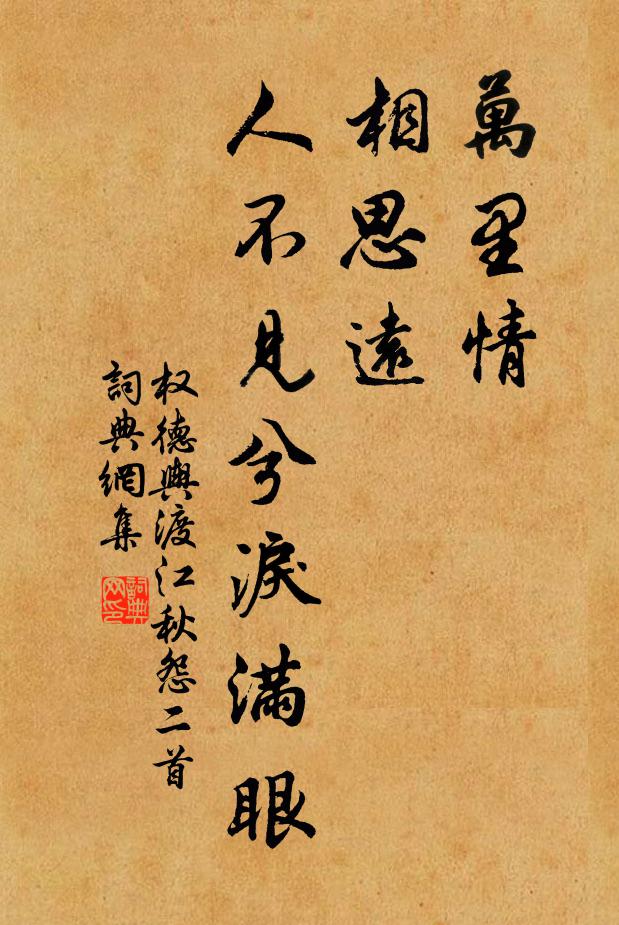 萬里情
相思遠
人不見兮淚滿眼
权德輿渡江秋怨二首
詞典網集
詞典网印